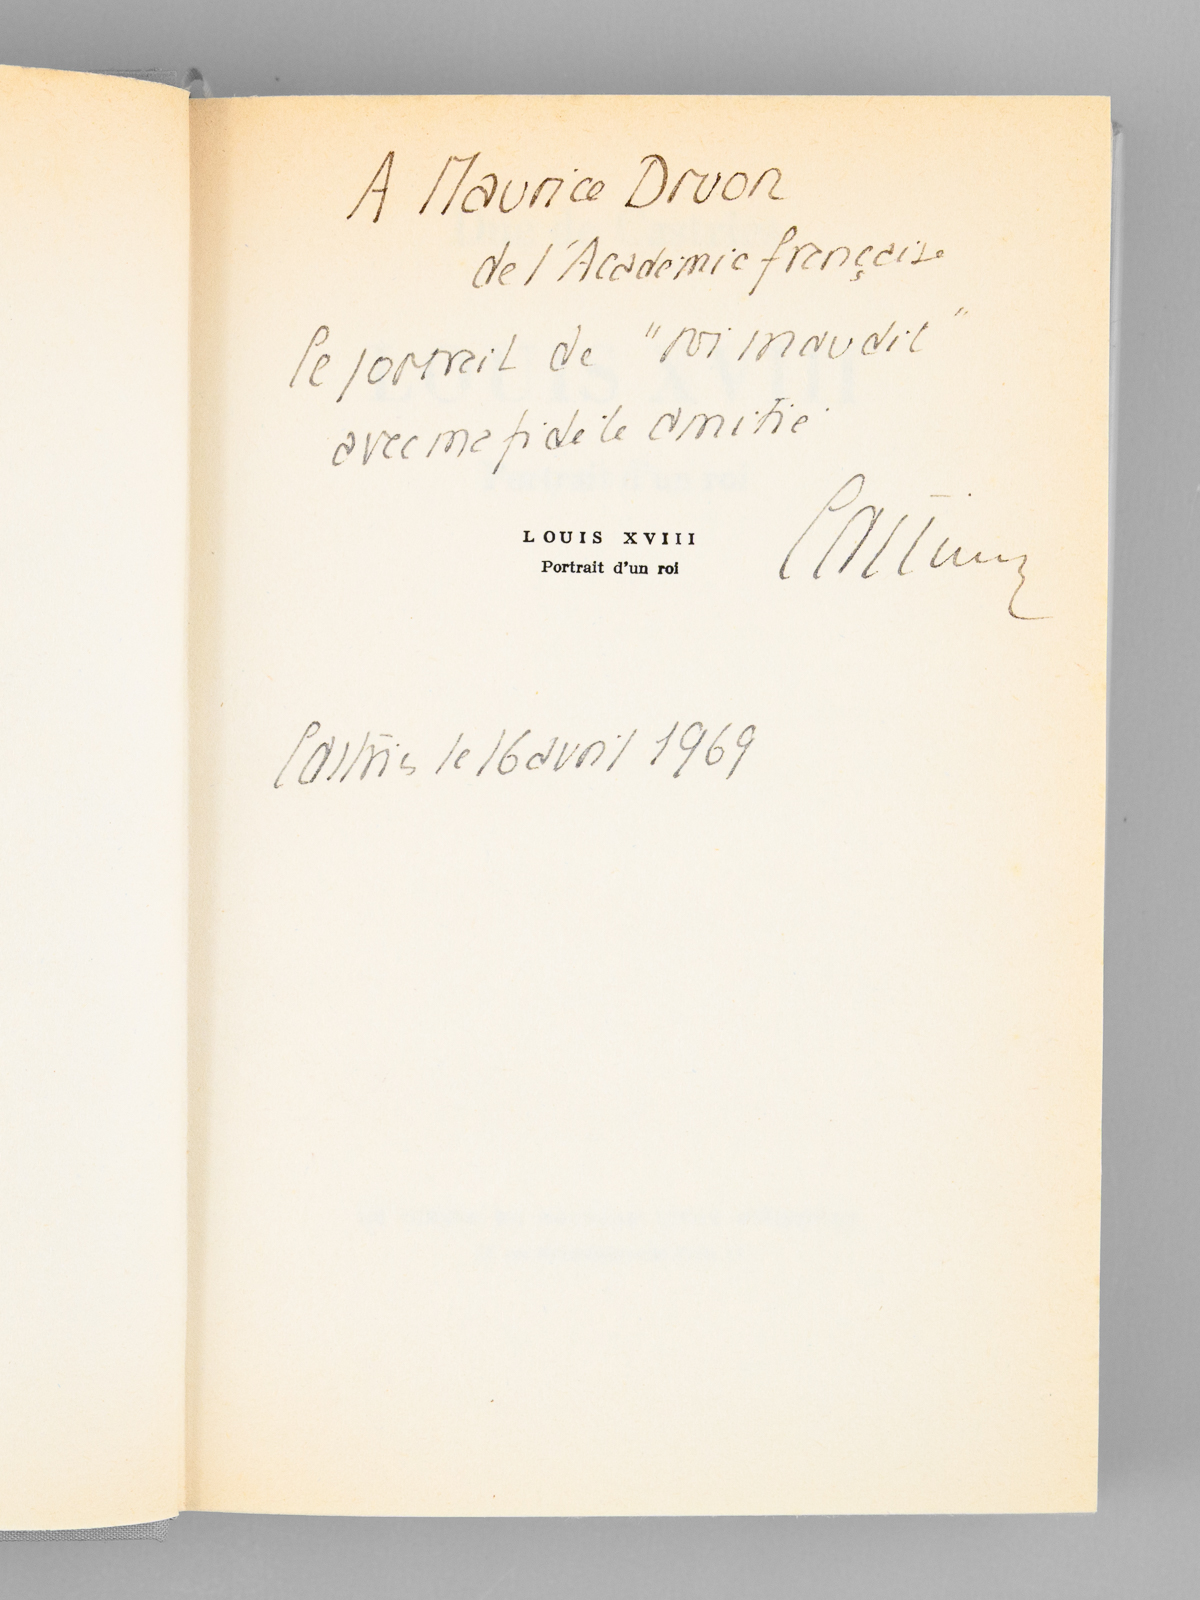 A Maurice Druon
de l'Académie française
le portrait de "roi maudit"
avec ma fidele amitié
Castries
LOUIS XVIII
Portrait d'un roi
Castries le 16 avril 1969